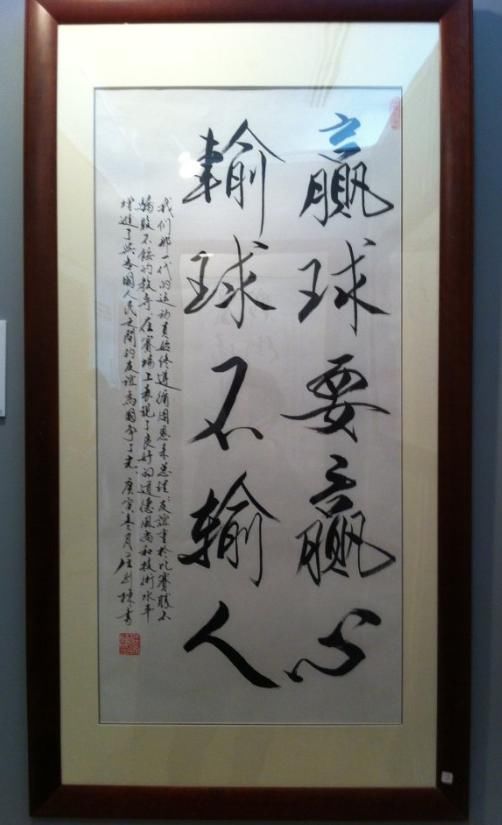 赢球要赢心
输球不输人
我们那一代的运动员始终遵循周恩来总理：友谊重于比赛胜不
骄败不馁的教导在赛场上表现了良好的道德风尚和技术水平
增进了与各国人民之间的友谊为国争了光。庚寅冬月庄则栋书